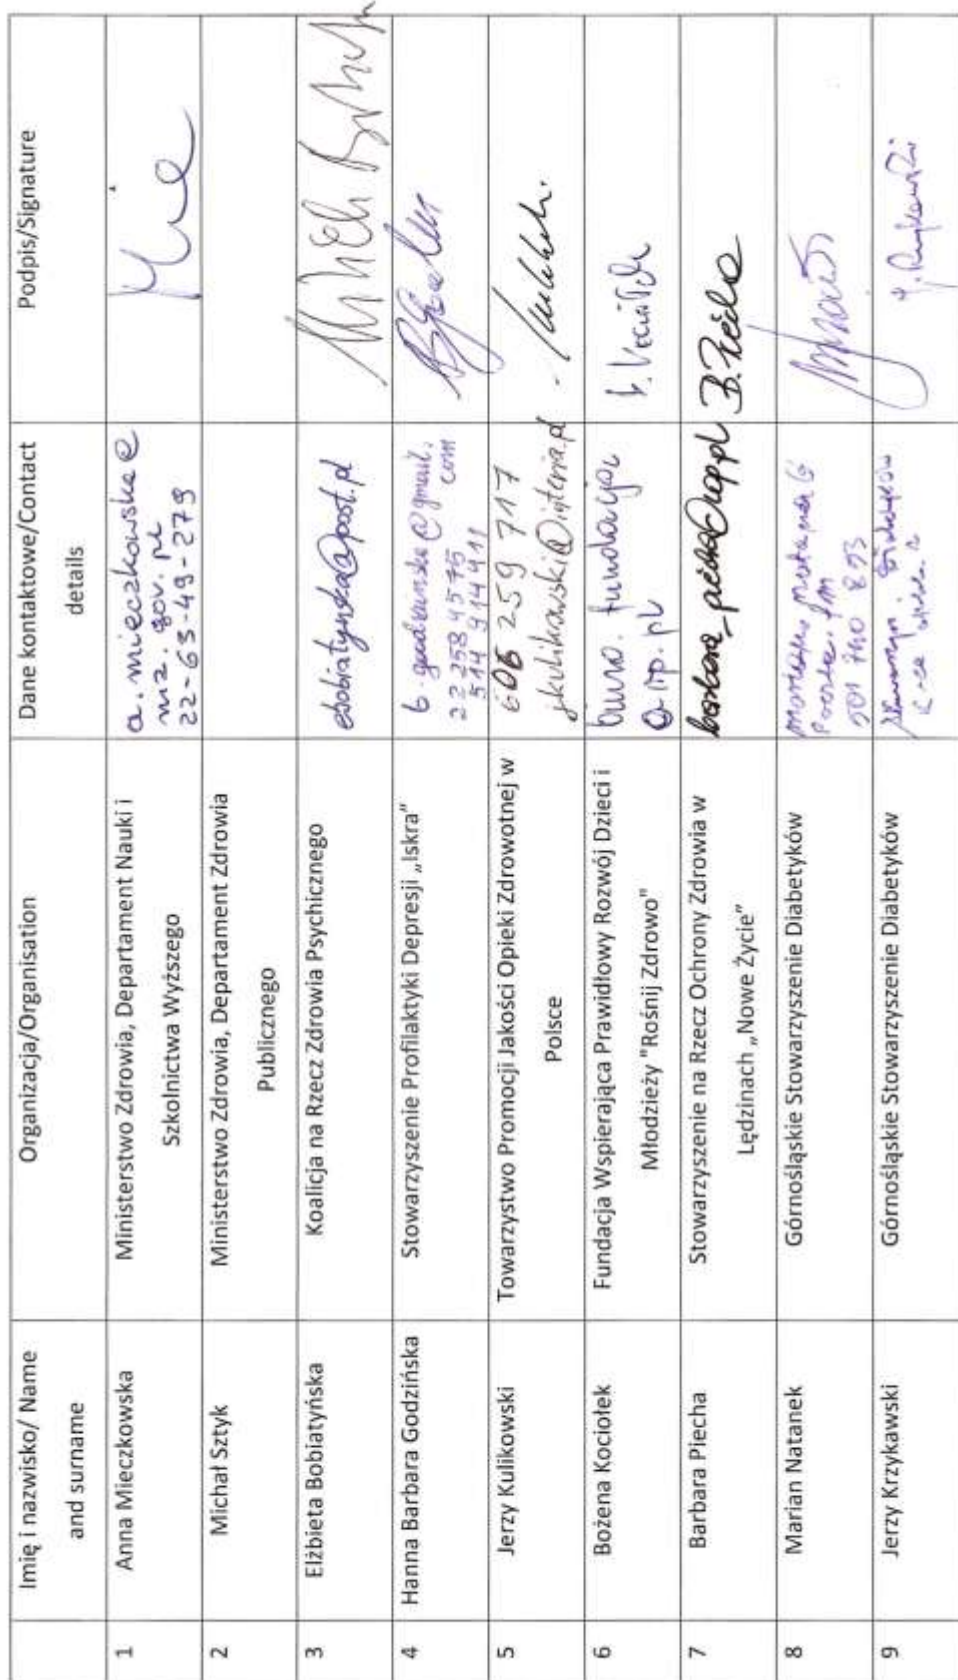 Imię i nazwisko/ Name
and surname
Organizacja/Organisation
Dane kontaktowe/Contact
details
Podpis/Signature
1
Anna Mieczkowska
Ministerstwo Zdrowia, Departament Nauki i
Szkolnictwa Wyższego
a.mieczkowska@
mz.gov.pl
22-63-49-279
2
Michał Sztyk
Ministerstwo Zdrowia, Departament Zdrowia
Publicznego
3
Elżbieta Bobiatyńska
Koalicja na Rzecz Zdrowia Psychicznego
ebobiatynska@post.pl
4
Hanna Barbara Godzińska
Stowarzyszenie Profilaktyki Depresji „Iskra”
@gmail.
22 258 4575 com
514 914 411
5
Jerzy Kulikowski
Towarzystwo Promocji Jakości Opieki Zdrowotnej w
Polsce
606 259 717
jkulikowski@interia.pl
6
Bożena Kociołek
Fundacja Wspierająca Prawidłowy Rozwój Dzieci i
Młodzieży "Rośnij Zdrowo"
biuro.fundacja
7
Barbara Piecha
Stowarzyszenie na Rzecz Ochrony Zdrowia w
Lędzinach „Nowe Życie”
barbara_piecha@op.pl
B. Piecha
8
Marian Natanek
Górnośląskie Stowarzyszenie Diabetyków
9
Jerzy Krzykawski
Górnośląskie Stowarzyszenie Diabetyków